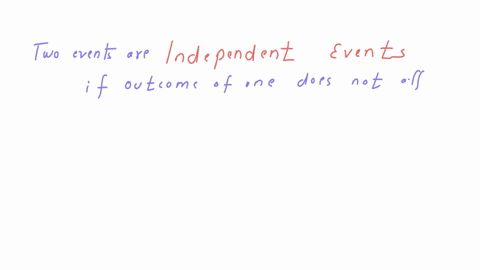 Two events are Independent Events
if outcome of one does not aff